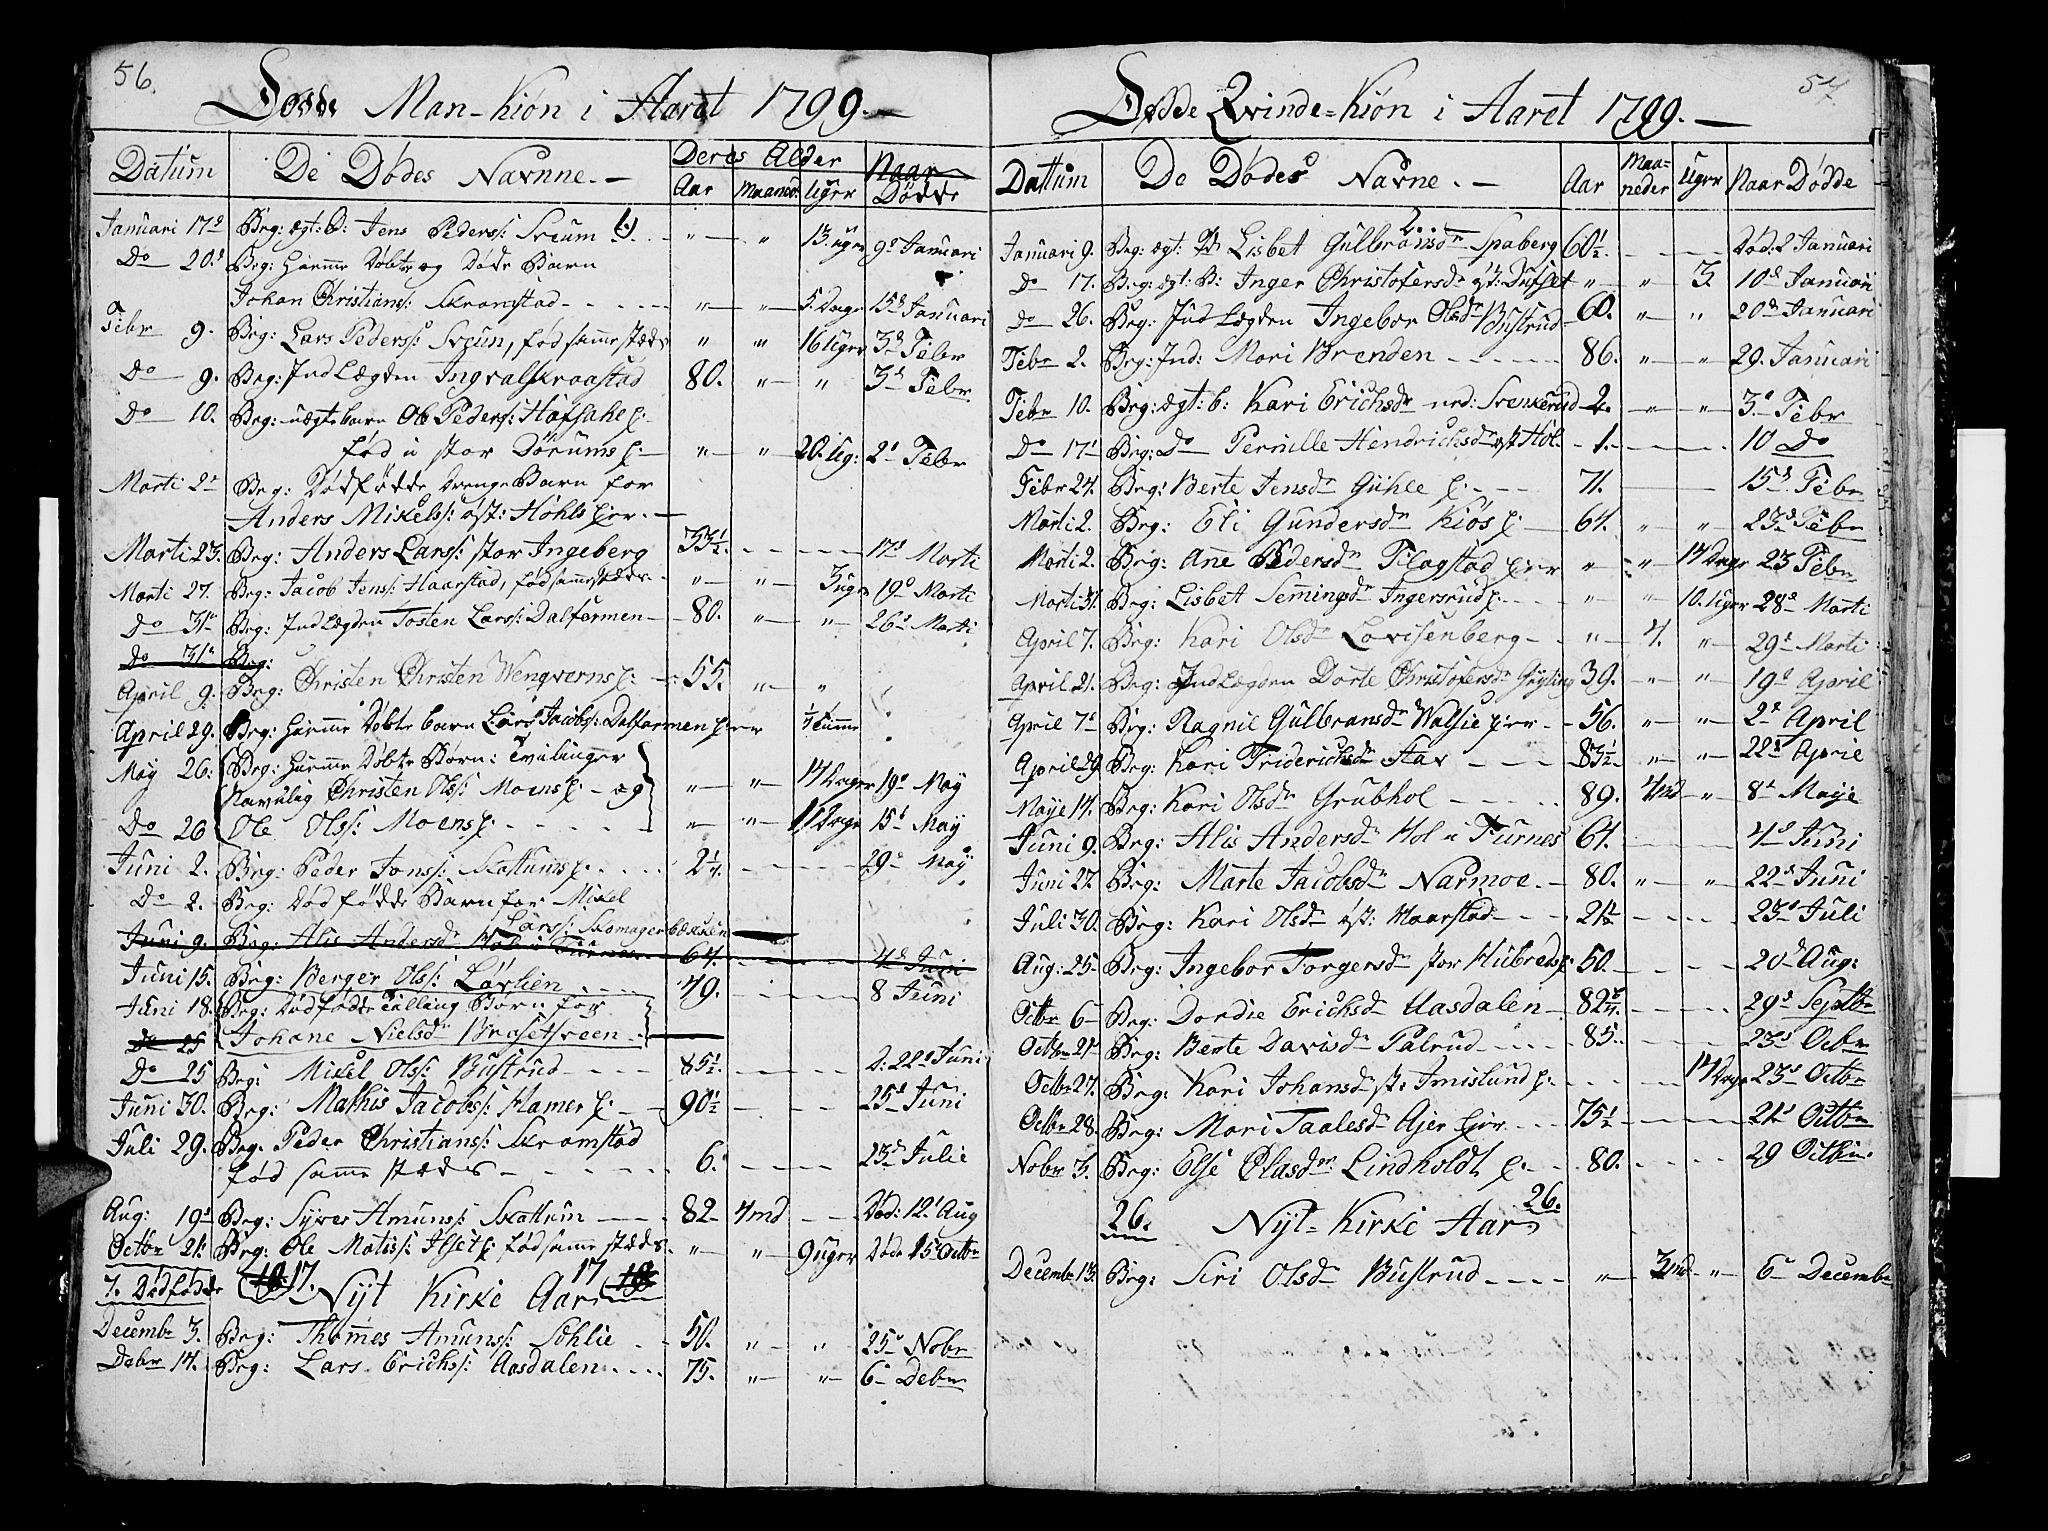 56.
Døde Man-Kiön i Aaret 1799.
Datum De Dödes Navnne. Deres Alder Naar Dödde
Aar Maand: Uger
Januari 17d Brg: ægt: B: Jens Peders: Sveum 13 uger 9d Januari
Do 20d Brg: Hiemme Döbte og Döde Barn
Johan Christians: Skramstad 5. Dage 15d Januari
Febr 9. Brg: Lars Peders: Sveun, fød samme stæds 16 Uger 3d Febr
Do 9. Brg: Ind Lægden Ingval Skraastad 80. 3d Febr
Do 10. Brg: uægte barn Ole Peders: Hofsahe
fød i stor Dörum 20. Ug: 2d Febr
Marti 2d Brg: Dödfødde Drenge Barn for
Anders Mikels: øst: Hohls
Marti 23. Brg: Anders Lars: stor Ingeberg 33½. 17d Marti
Marti 27. Brg: Jacob Jens: Haarstad, fød samme stæds 3 uger 19d Marti
Do 31te Brg: Ind Lægden Tosten Lars: Dalfarmen 80. 26d Marti
Do 31te Brg:
April 9. Brg: Christen Christen Wengverns 55.
April 29. Brg: Hiemme Döbte barn Lars Jacobs: Dalfarmen Time
May 26. Brg: Hiemme Döbte Børn: Tvilinger
Navnlig Christen Ols: Moens og 14 Dager 19d May
Do 26 Ole Ols: Moens 11 Dage 15d May
Juni 2. Brg: Peder Jons: Skattums 2¼. 29d May
Do 2. Brg: Død fødde Barn for Mikel
Lars: Skomager
Juni 9. Brg: Alis Andersdr Hol i Furnes 64. 4d Juni
Juni 15. Brg: Berger Ols: Lövlien 49. 8 Juni
Juni 18. Brg: Dödfødde Tilling Börn for
Do 25 Johane Nielsdr Braset
Do 25 Brg: Mikel Ols: Bustrud 85½. D: 22d Juni
Juni 30. Brg: Mathis Jacobs: Hamer 90½ 25d Juni
Juli 29. Brg. Peder Christians: Skramstad
fød samme stæds 6. 23d Julie
Aug: 19d Brg: Syver Amuns: Skattum 82 4md Död: 12d Aug
Octbr 21. Brg: Ole Matis: Ilset fød samme stæds. 9 uger Döde 15d Octbr
7. Dødfødde 17. Nyt Kirke Aar 17
Decembr 3. Brg: Thomes Amuns: Sohlie 50. 25d Nobr
Debr 14. Brg: Lars Erichs: Aasdalen 75. 6 Debr
57.
Dødde Qvinde-Kiön i Aaret 1799.
Dattum De Dødes Navne. Aar Maaneder Uger Naar Dödde
Januari 9. Brg: ægt: Lisbet Gulbransdr Spaberg 60½ Död: 2 Januari
Do 17. Brg: ægt: B: Inger Christofersdr 3 10d Januari
Do 26. Brg: Ind Lægden Ingebor Olsdr Bustrud 60. 20d Januari
Febr 2. Brg: Ind: Mari Brenden 86. 29. Januari
Febr 10. Brg: ægt: b: Kari Erichsdr ned: Svenkerud 2. 3d Febr
Do 17d Brg: Do Pernille Hendrichsdr øst Hol 1. 10 Do
Febr 24. Brg: Berte Jensdr Guhle 71. 15d Febr
Marti 2. Brg: Eli Gundersdr Kiös 64. 23d Febr
Marti 2. Brg: Ane Pedersdr Flagstad 14 Dage 23 Febr
Marti 31. Brg: Lisbet Semingsdr Ingersrud 10. Uger 28d Marti
April 7. Brg: Kari Olsdr Lovisenberg 4. 29d Marti
April 21. Brg: Ind Lægden Dorte Christofersdr 39. 19d April
April 7d Brg: Ragnil Gulbransdr Walsie 56. 2d April
April 29 Brg: Kari Friderichsdr Aar 83½. 22d April
Maye 14. Brg: Kari Olsdr Grubhol 89. 4md 8d Maye
Juni 9. Brg: Alis Andersdr Hol i Furnes 64. 4d Juni
Juni 27. Brg: Marte Jacobsdr Narmoe 80. 22d Juni
Juli 30. Brg: Kari Olsdr øst: Haarstad 21½ 23d Juli
Aug: 25 Brg: Ingebor Torgersdr stor Hubred 50. 20d Aug:
Octbr 6 Brg: Dordie Erichsdr Aasdalen 82 29d Septbr
Octbr 21 Brg: Berte Davidsdr Palrud 85. 23d Octbr
Octbr 27. Brg: Kari Johansdr st: Imislund 14 Dage 23d Octbr
Octbr 28. Brg: Mari Taalesdr Ajer 75½ 21d Octbr
Nobr 3. Brg: Else Olasdr Lindholdt 80. 29 Octbr
26. Nyt-Kirke Aar 26.
Decembr 13. Brg: Siri Olsdr Bustrud 3md 6 Decembr